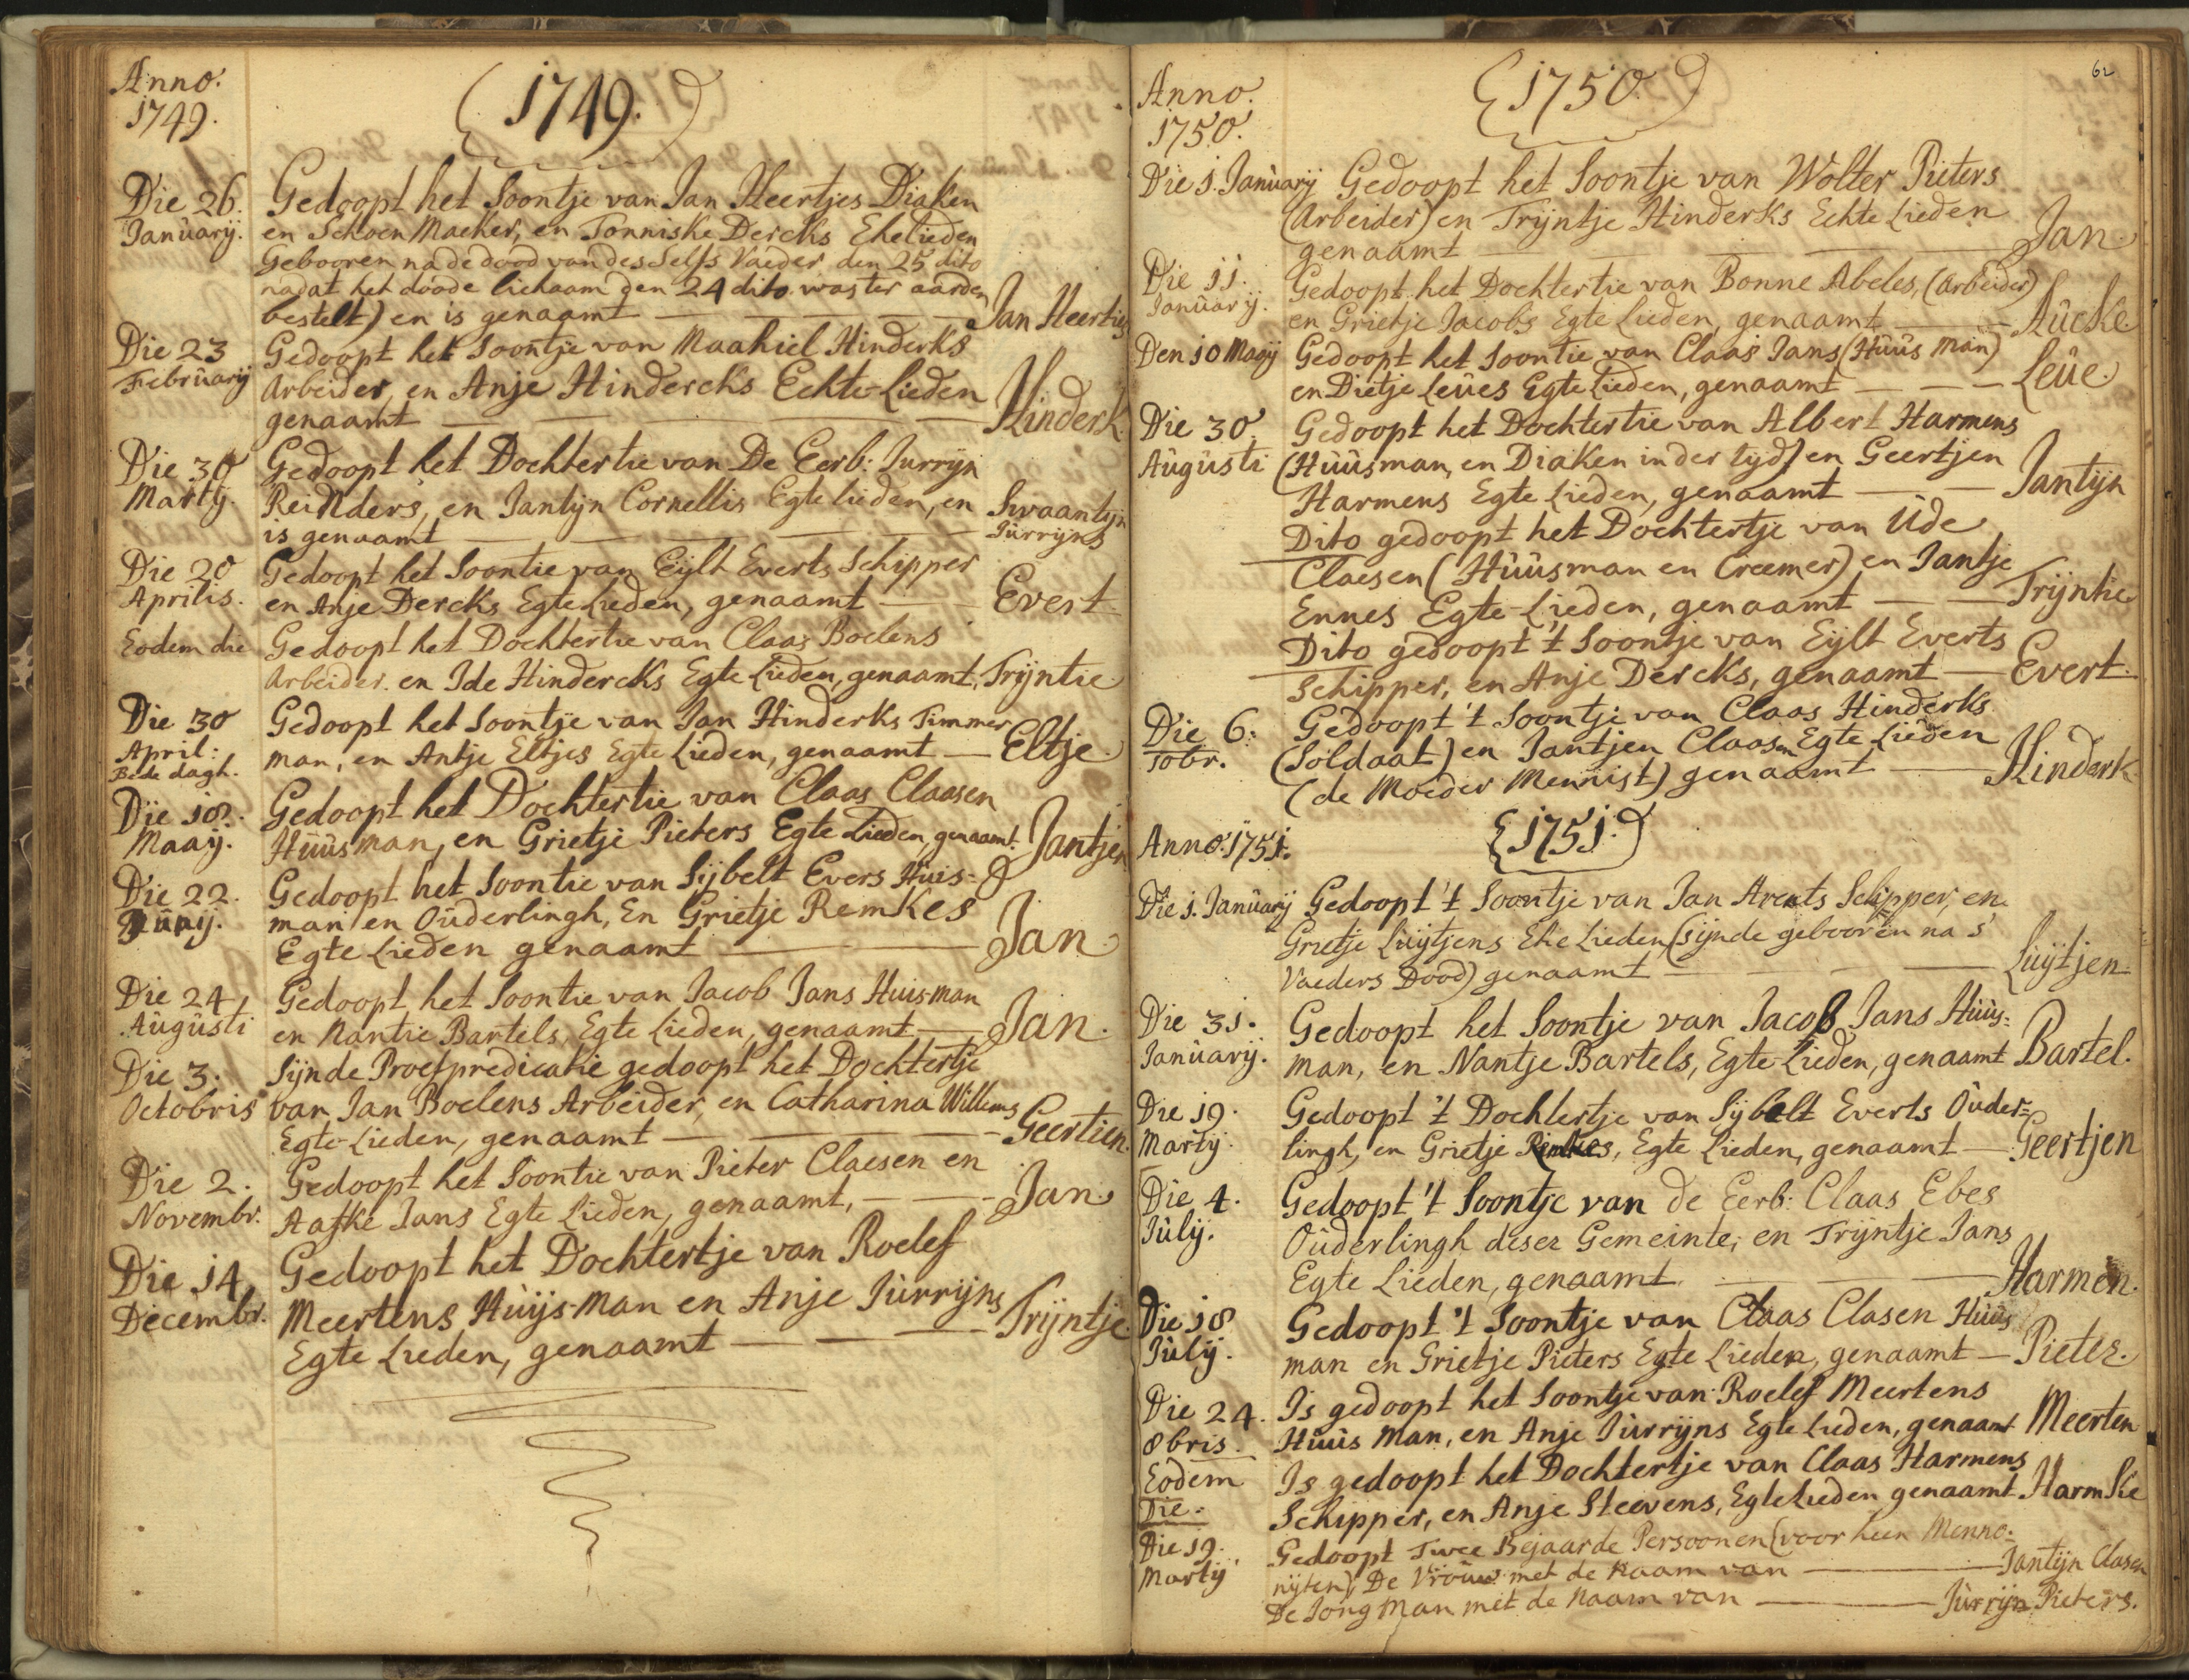 Anno.
1749.
1749.
Die 26. Gedoopt het Soontje van Jan Heertjes Diaken
Januarij. en Schoen Maeker, en Tonniske Dercks Ehelieden
Gebooren na de dood van des Selfs Vaeder den 25 dito
nadat het doode lichaam den 24 dito was ter aarden
bestelt) en is genaamt — Jan Heerties
Die 23 Gedoopt het Soontje van Maahiel Hinderks
Februarij Arbeider, en Anje Hindercks Echte-Lieden
genaamt — Hinderk.
Die 30 Gedoopt het Dochtertie van De Eerb: Jurrijn
Martij. Reinders, en Jantijn Cornellis Egte lieden, en Swaantijn
is genaamt — Jurrijns
Die 20 Gedoopt het Soontie van Eijlt Everts Schipper
Aprilis. en Anje Dercks Egte Lieden, genaamt — Evert.
Eodem die Gedoopt het Dochtertie van Claas Boelens
Arbeider. en Ide Hindercks Egte Lieden, genaamt, Trijntie.
Die 30 Gedoopt het Soontje van Jan Hinderks Timmer
April: man, en Antje Eltjes Egte Lieden, genaamt — Eltje.
Bede dagh.
Die 18. Gedoopt het Dochtertie van Claas Claasen
Maaij. Huusman, en Grietje Pieters Egte Lieden, genaamt. Jantjen
Die 22. Gedoopt het Soontie van Sijbelt Evers Huis-
Junij. man en Ouderlingh, En Grietje Remkes
Egte Lieden genaamt — Jan.
Die 24 Gedoopt het Soontie van Jacob Jans Huisman
Augusti en Nantie Bartels, Egte Lieden, genaamt — Jan.
Die 3. Sijnde Proefpredicatie gedoopt het Dochtertje
Octobris van Jan Boelens Arbeider, en Catharina Willems
Egte-Lieden, genaamt — Geertien.
Die 2. Gedoopt het Soontie van Pieter Claesen en
Novembr. Aafke Jans Egte Lieden, genaamt, — Jan.
Die 14 Gedoopt het Dochtertje van Roelef
Decembr. Meertens Huijs-Man en Anje Jurrijns
Egte Lieden, genaamt — Trijntje.
62
Anno.
1750.
1750.
Die 1. Januarij Gedoopt het Soontje van Wolter Pieters
(Arbeider) en Trijntje Hinderks Echte Lieden
genaamt — Jan.
Die 11. Gedoopt het Dochtertie van Bonne Abeles, (Arbeider)
Januarij. en Grietje Jacobs Egte Lieden, genaamt — Aucke.
Den 10 Maaij Gedoopt het Soontie van Claas Jans (Huus man)
en Dietje Leues Egte Lieden, genaamt — Leue.
Die 30 Gedoopt het Dochtertie van Albert Harmens
Augusti (Huusman, en Diaken in der tijd) en Geertjen
Harmens Egte Lieden, genaamt — Jantijn
Dito gedoopt het Dochtertje van Ude
Claesen (Huusman en Creemer) en Jantje
Ennes Egte-Lieden, genaamt — Trijntie
Dito gedoopt 't Soontje van Eijlt Everts
Schipper, en Anje Dercks, genaamt — Evert.
Die 6: Gedoopt 't Soontje van Claas Hinderks
10br. (Soldaat) en Jantjen Claasen Egte Lieden
(de Moeder Mennist) genaamt — Hinderk
1751.
Anno. 1751.
Die 1. Januarij Gedoopt 't Soontje van Jan Arents Schipper, en
Grietje Luijtjens Ehe Lieden (sijnde gebooren na 's
Vaeders Dood) genaamt — Luijtjen
Die 31. Gedoopt het Soontje van Jacob Jans Huus-
Januarij. man, en Nantje Bartels, Egte-Lieden, genaamt Bartel.
Die 19. Gedoopt 't Dochtertje van Sijbelt Everts Ouder-
Martij. lingh, en Grietje Remkes, Egte Lieden, genaamt — Geertjen
Die 4. Gedoopt 't Soontje van de Eerb: Claas Ebes
Julij. Ouderlingh deser Gemeinte, en Trijntje Jans
Egte Lieden, genaamt. — Harmen.
Die 18 Gedoopt 't Soontje van Claas Clasen Huus
Julij. man en Grietje Pieters Egte Lieden, genaamt — Pieter.
Die 24. Is gedoopt het Soontje van Roelef Meertens
8bris. Huus Man, en Anje Jurrijns Egte Lieden, genaamt Meerten
Eodem Is gedoopt het Dochtertje van Claas Harmens
Die. Schipper, en Anje Steevens, Egte Lieden genaamt Harmkie
Die 19. Gedoopt Twee Bejaarde Persoonen (voor heen Menno-
Martij nijten) De Vrouw met de Naam van — Jantijn Clasen
De Jong Man met de Naam van — Jurrijn Pieters.